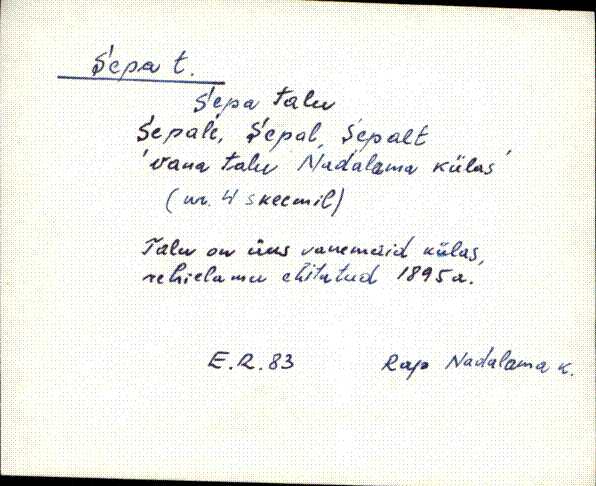 S'epa t.
S'epa talu
S'epale, S'epal, S'epalt
'vana talu Nadalama külas'
(nr. 4 skeemil)
Talu on üks vanemaid külas,
rehielamu ehitatud 1895a.
E.R. 83 Rap Nadalama k.